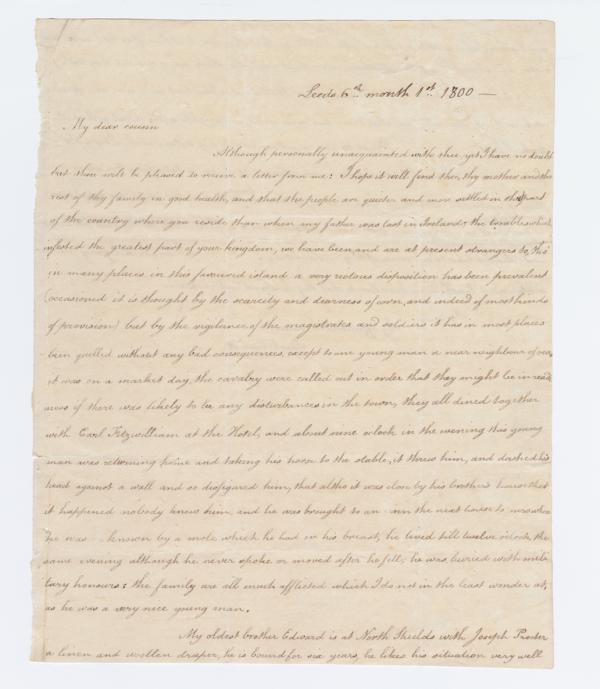 Leeds 6th month 1st 1800 —
My dear cousin
Although personally unacquainted with thee, yet I have no doubt
but thou wilt be pleased to receive a letter from me: I hope it will find thee, thy mother and the
rest of thy family in good health, and that the people are quieter and more settled in that part
of the country where you reside than when my father was last in Ireland; the troubles which
infested the greatest part of your kingdom, we have been, and are at present strangers to, tho'
in many places in this favoured island a very riotous disposition has been prevalent
(occasioned it is thought by the scarcity and dearness of corn, and indeed of most kinds
of provision) but by the vigilance of the magistrates and soldiers it has in most places
been quelled without any bad consequences, except to one young man a near neighbour of ours,
it was on a market day, the cavalry were called out in order that they might be in readi
ness if there was likely to be any disturbances in the town, they all dined together
with Earl Fitzwilliam at the Hotel, and about nine o'clock in the evening this young
man was returning home and taking his horse to the stable, it threw him, and dashed his
head against a wall and so disfigured him, that altho it was close by his brother's house that
it happened nobody knew him, and he was brought to an inn the next house to ours where
he was known by a mole which he had on his breast, he lived till twelve o'clock the
same evening although he never spoke or moved after he fell; he was buried with mili
tary honours: the family are all much afflicted which I do not in the least wonder at,
as he was a very nice young man.
My oldest brother Edward is at North Shields with Joseph Procter
a linen and wollen draper, he is bound for six years, he likes his situation very well